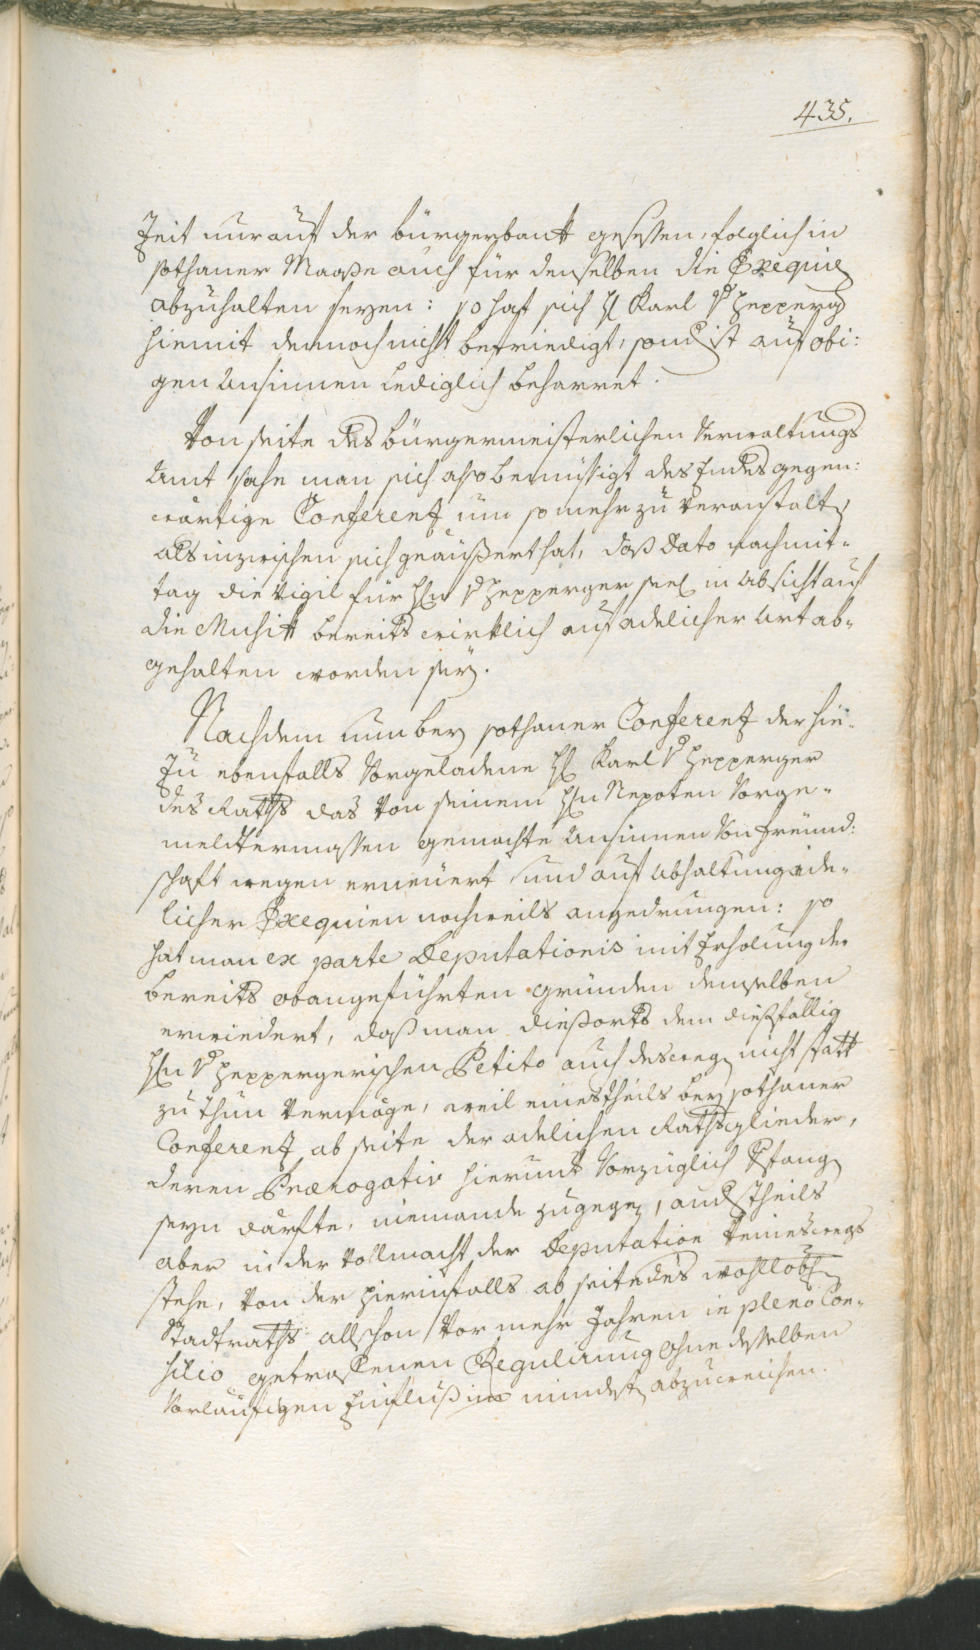 435.
Zeit nur auf der bürgerbankh gesessen, folglich in
sothaner Maaße auch für denselben die Exequien
abzuhalten seyen: so hat sich H Karl v Hepperg
hiemit dennoch nicht befriedigt, sond ist auf obi:
gen Ansinnen lediglich beharret.
Von seite des bürgermeisterlichen Verwaltungs
Amt sahe man sich also bemüssigt des Endes gegen:
wärtige Conferenz um so mehr zu veranstalten,
als inzwischen sich geäußert hat, daß dato nachmit-
tag die Vigil für Hn v Hepperger seel in Absicht auf
die Musikh bereits wirklich auf adelicher Art ab-
gehalten worden sey.
Nachdem nun bey sothaner Conferenz der hie-
zu ebenfalls Vorgeladene H Karl v Hepperger
des Raths das von seinem Hn Nepoten Vorge-
meldtermassen gemachte Ansinnen von freünd:
schaft wegen erneüert und auf Abhaltung ade-
licher Exequien nochweils angedrungen: so
hat man ex parte Deputationis mit Erholung der
bereits obangeführten gründen demselben
erwiedert, daß man diesorts dem diesfällig
Hn v Heppergerischen Petito auch deswegen nicht statt
zu thun vermöge, weil eines theils bey sothaner
Conferenz ab seite der adelichen Rathsglieder,
deren Prærogativ hierunt Vorzüglich
seyn därfte, niemande zugegen, andstheils
aber in der Vollmacht der Deputation keineswegs
stehe, von der hierinfalls ab seite des wohllöbl
Stadtraths allschon vor mehr Jahren in pleno Con-
silio getroffenen Regulirung ohne desselben
Vorläufigen Einfluß im mindesten abzuweichen.